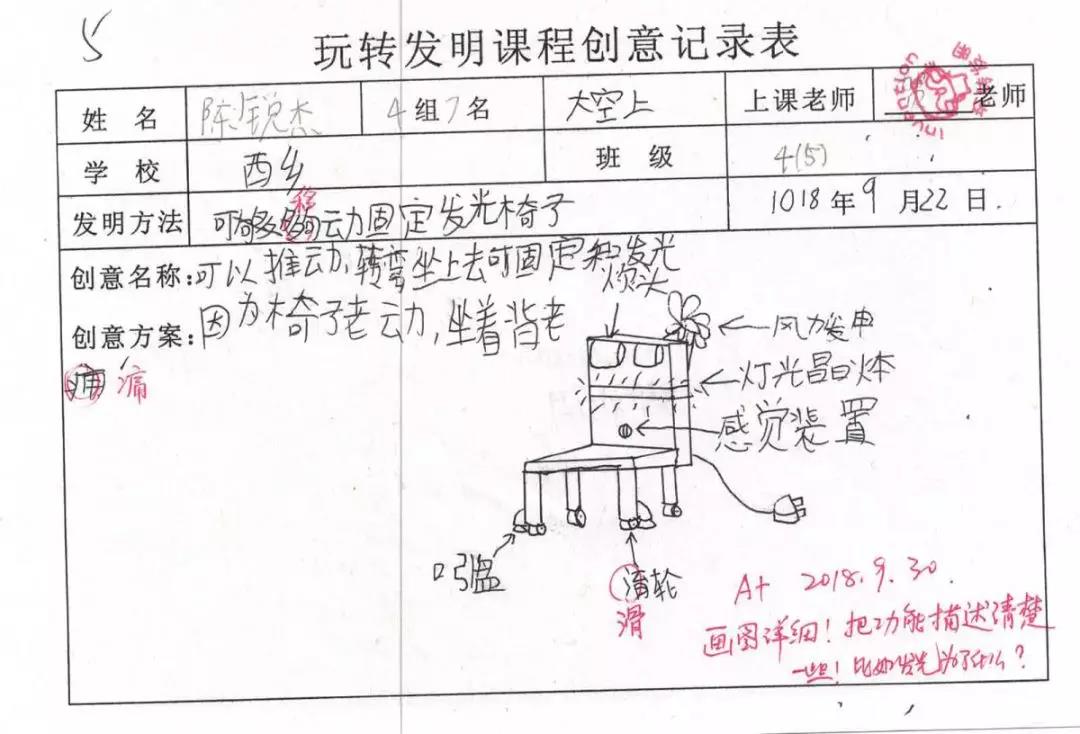 5
玩转发明课程创意记录表
姓 名 陈锐杰 4组7名 大空上 上课老师 老师
学 校 西乡 班 级 4(5)
发明方法 可够移动力固定发光椅子 1018年9月22日.
创意名称:可以推动,转弯坐上去可固定和发光
灯头
创意方案:因为椅子老动,坐着背老
痛
风力发申
灯光
感觉装置
吸盘
轮
滑
A+ 2018.9.30.
画图详细!把功能描述清楚
一些!比如发光为了什么?